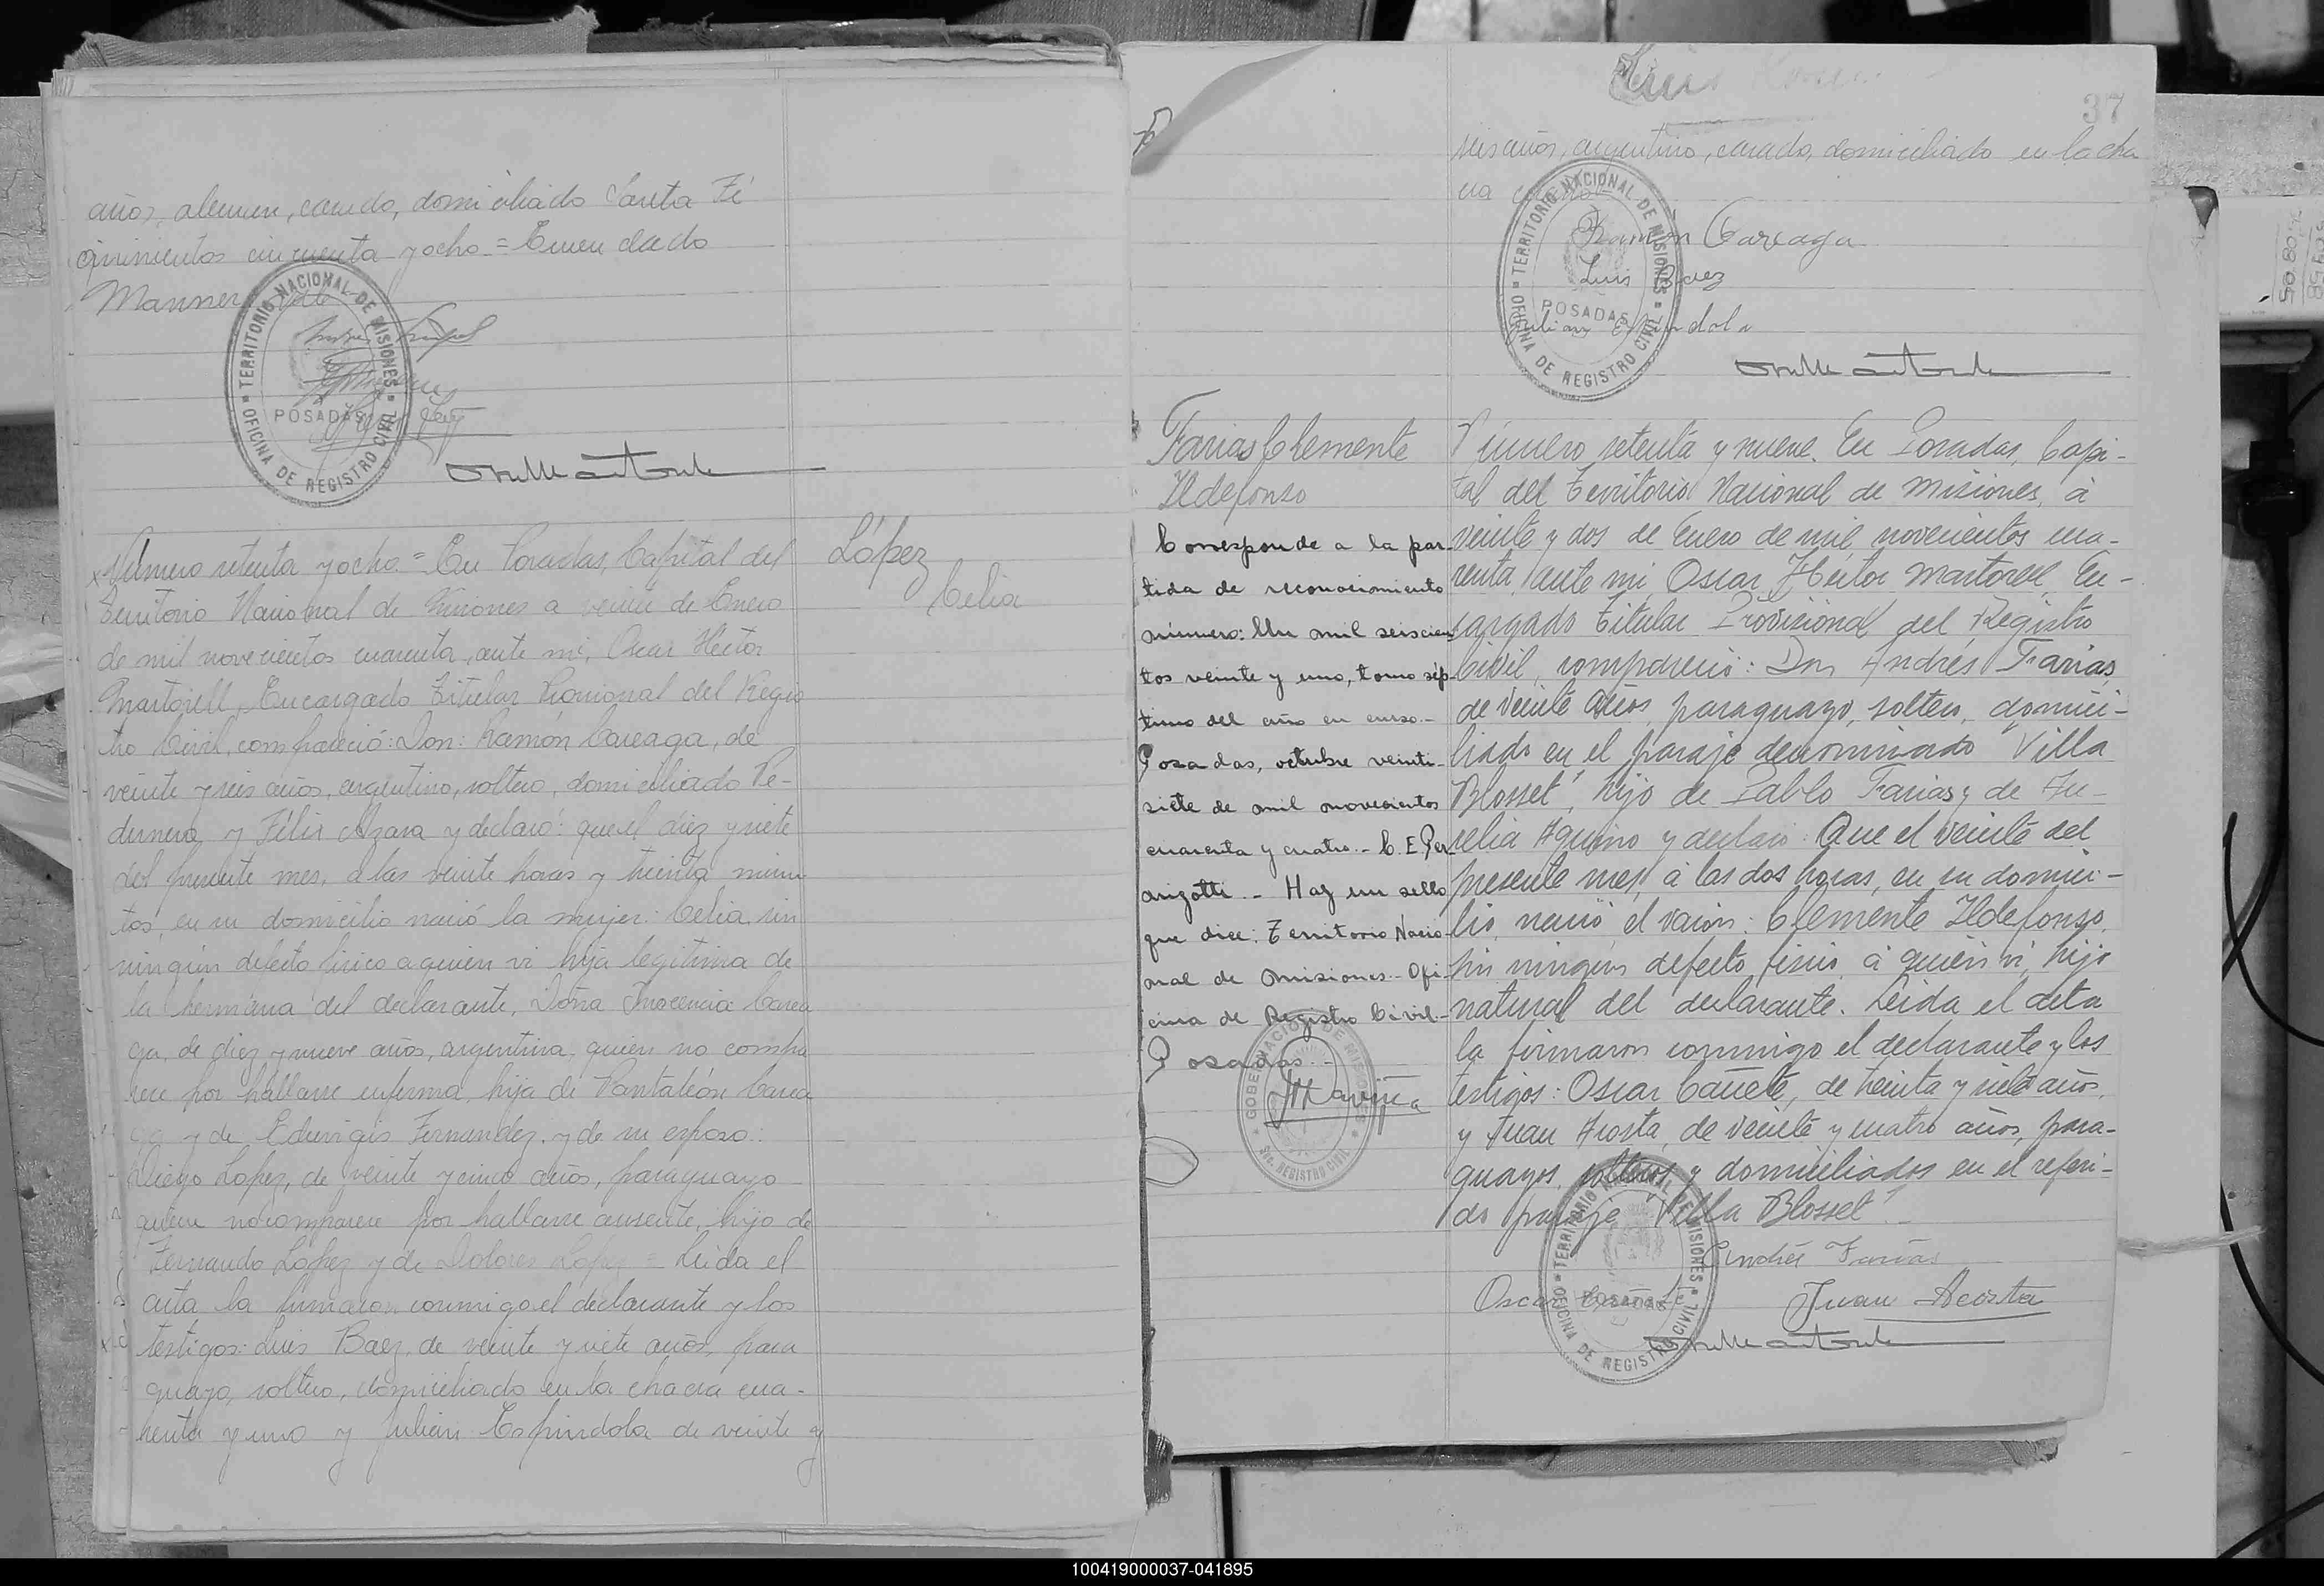 años, aleman, casado, domiciliado Santa Fé
quinientos cincuenta y ocho = Enmendado
Manner vale
TERRITORIO NACIONAL DE MISIONES
POSADAS
OFICINA DE REGISTRO CIVIL
Número setenta y ocho = En Posadas, Capital del
Territorio Nacional de Misiones a veinte de Enero
de mil novecientos cuarenta, ante mi, Oscar Héctor
Martorell, Encargado Titular Provisional del Regis
tro Civil, compareció: Don: Ramón Careaga, de
veinte y seis años, argentino, soltero, domiciliado Pe-
dernera y Félix Azara y declaró: que el diez y siete
del presente mes, a las veinte horas y treinta minu
tos, en su domicilio nació la mujer: Celia, sin
ningún defecto fisico a quien vi hija legitima de
la hermana del declarante, Doña Inocencia Carea
ga, de diez y nueve años, argentina, quien no compa
rece por hallarse enferma, hija de Pantaleón Carea
ga y de Eduvigis Fernandez, y de su esposo:
Diego Lopez, de veinte y cinco años, paraguayo
quien no comparece por hallarse ausente, hijo de
Fernando López y de Dolores López = Leida el
acta la firmaron conmigo el declarante y los
testigos: Luis Baez, de veinte y siete años, para
guayo, soltero, domiciliado en la chacra cua-
renta y uno y Julián Espindola de veinte y
López
Celia
Luis
37
seis años, argentino, casado, domiciliado en la cha
cra
TERRITORIO NACIONAL DE MISIONES
Ramón Careaga
Luis Baez
POSADAS
Julian Espindola
OFICINA DE REGISTRO CIVIL
Farias Clemente
Ildefonso
Corresponde a la par-
tida de reconocimiento
número: Un mil seiscien
tos veinte y uno, tomo sép-
timo del año en curso.-
Posadas, octubre veinti-
siete de mil novecientos
cuarenta y cuatro.- C. E. Per
arizotti.- Hay un sello
que dice: Territorio Nacio-
nal de Misiones.- Ofi-
cina de Registro Civil.-
Posadas.-
GOBERNACION DE MISIONES
SEC. REGISTRO CIVIL
Número setenta y nueve. En Posadas, Capi-
tal del Territorio Nacional de Misiones, á
veinte y dos de Enero de mil novecientos cua-
renta, ante mi, Oscar Héctor Martorell, En-
cargado Titular Provisional del Registro
Civil, compareció: Don Andrés Farias,
de veinte años, paraguayo, soltero, domici-
liado en el paraje denominado "Villa
Blosset", hijo de Pablo Farias y de Au-
relia Aquino y declaró: Que el veinte del
presente mes, á las dos horas, en su domici-
lio, nació el varón: Clemente Ildefonso,
sin ningún defecto fisico, á quién vi, hijo
natural del declarante. Leida el acta
la firmaron conmigo el declarante y los
testigos: Oscar Cañete, de treinta y siete años,
y Juan Acosta, de veinte y cuatro años, para-
guayos, solteros y domiciliados en el referi-
do paraje "Villa Blosset".-
TERRITORIO NACIONAL DE MISIONES
Andrés Farias
Oscar Cañete
POSADAS
Juan Acosta
OFICINA DE REGISTRO CIVIL
100419000037-041895